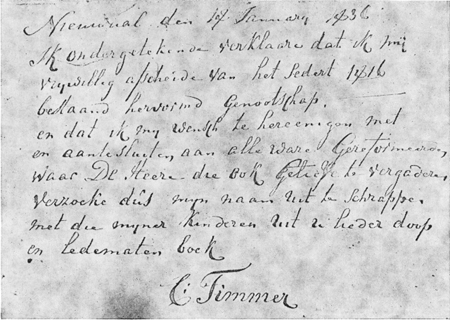 Nieuwval den 17 January 1836
Ik ondergetekende verklaare dat ik mij
vrijwillig afscheide van het Sedert 1816
bestaand hervormd Genootschap.
en dat ik mij wensch te hereenigen met
en aantesluiten aan alle ware Gereformeerden,
waar De Heere die ook Gelieft te vergaderen
verzoeke dus mijn naam uit te schrappe.
met die mijner kinderen uit u lieder doop
en ledematen boek
C: Timmer